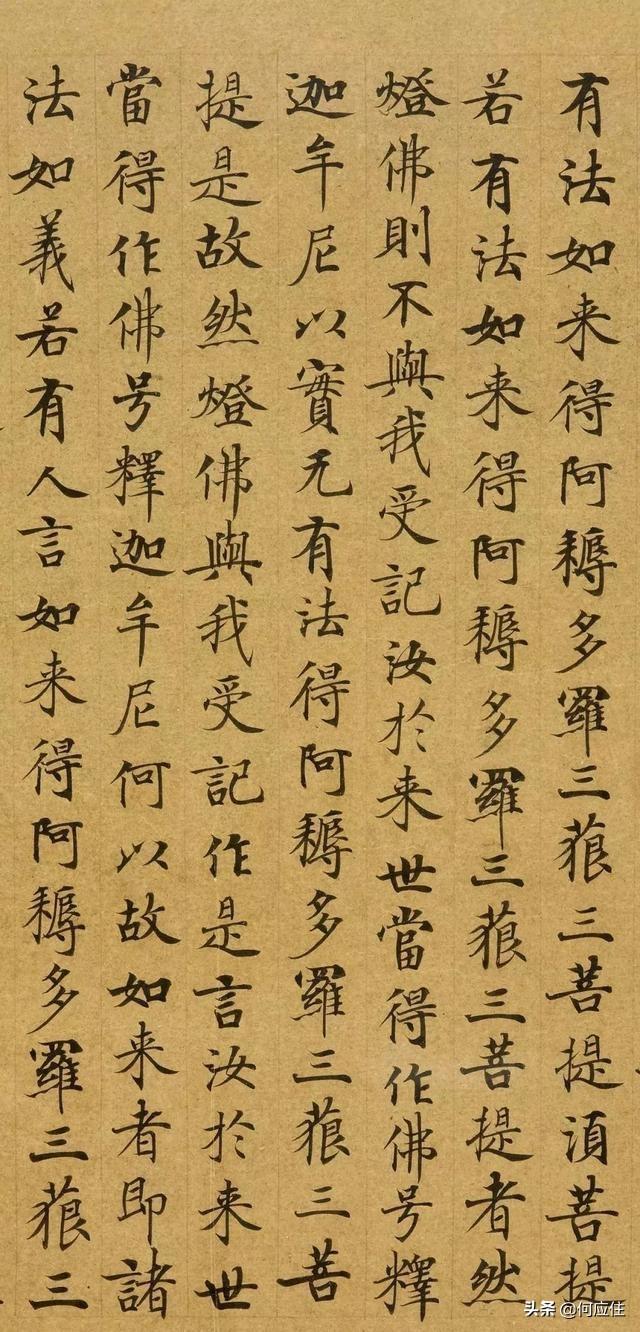 有法如来得阿耨多羅三藐三菩提須菩提
若有法如来得阿耨多羅三藐三菩提者然
燈佛則不與我受記汝於来世當得作佛号釋
迦牟尼以實无有法得阿耨多羅三藐三菩
提是故然燈佛與我受記作是言汝於来世
當得作佛号釋迦牟尼何以故如来者即諸
法如義若有人言如来得阿耨多羅三藐三
头条 @何应住